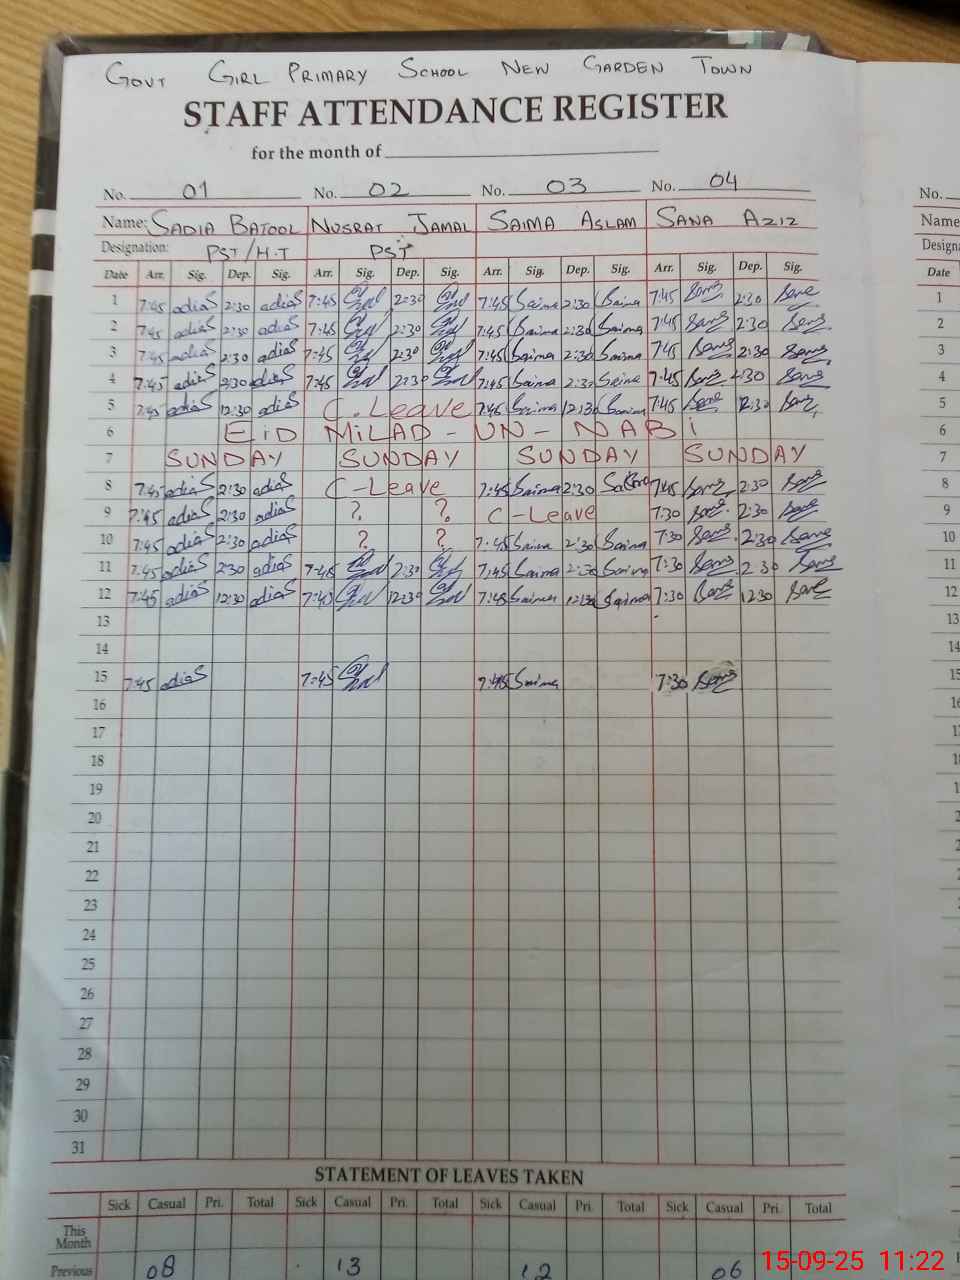 GOVT GIRL PRIMARY SCHOOL NEW GARDEN TOWN
STAFF ATTENDANCE REGISTER
for the month of
No. 01 No. 02 No. 03 No. 04 No.
Name: SADIA BATOOL NUSRAT JAMAL SAIMA ASLAM SANA AZIZ Name
Designation: PST/H.T PST Designa
Date Arr. Sig. Dep. Sig. Arr. Sig. Dep. Sig. Arr. Sig. Dep. Sig. Arr. Sig. Dep. Sig. Date
1 7:45 adiaS 2:30 adiaS 7:45 2:30 7:45 Saima 2:30 Saima 7:45 2:30 1
2 7:45 adiaS 2:30 adiaS 7:45 2:30 7:45 Saima 2:30 Saima 7:45 2:30 2
3 7:45 adiaS 2:30 adiaS 7:45 2:30 7:45 Saima 2:30 Saima 7:45 2:30 3
4 7:45 adiaS 2:30 adiaS 7:45 2:30 7:45 Saima 2:30 7:45 2:30 4
5 7:45 adiaS 12:30 adiaS C.Leave 7:45 Saima 12:30 Saima 7:45 12:30 5
6 EiD MiLAD-UN-NABi 6
7 SUNDAY SUNDAY SUNDAY SUNDAY 7
8 7:45 adiaS 2:30 adiaS C-Leave 7:45 Saima 2:30 7:45 2:30 8
9 7:45 adiaS 2:30 adiaS ? ? C-Leave 7:30 2:30 9
10 7:45 adiaS 2:30 adiaS ? ? 7:45 Saima 2:30 Saima 7:30 2:30 10
11 7:45 adiaS 2:30 adiaS 7:45 2:30 7:45 Saima 2:30 Saima 7:30 2:30 11
12 7:45 adiaS 12:30 adiaS 7:45 12:30 7:45 Saima 12:30 Saima 7:30 12:30 12
13 13
14 14
15 7:45 adiaS 7:45 7:45 Saima 7:30 15
16
17
18
19
20
21
22
23
24
25
26
27
28
29
30
31
STATEMENT OF LEAVES TAKEN
Sick Casual Pri. Total Sick Casual Pri. Total Sick Casual Pri. Total Sick Casual Pri. Total
This Month
Previous 08 13 12 06
15-09-25 11:22